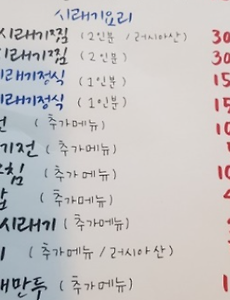 시래기요리
시래기찜 (2인분 / 러시아산) 30
시래기찜 (2인분) 30
시래기정식 (1인분) 15
시래기정식 (1인분) 15
전 (추가메뉴) 10
기전 (추가메뉴)
(추가메뉴) 10
(추가메뉴)
시래기 (추가메뉴)
(추가메뉴 / 러시아산)
만두 (추가메뉴) 1